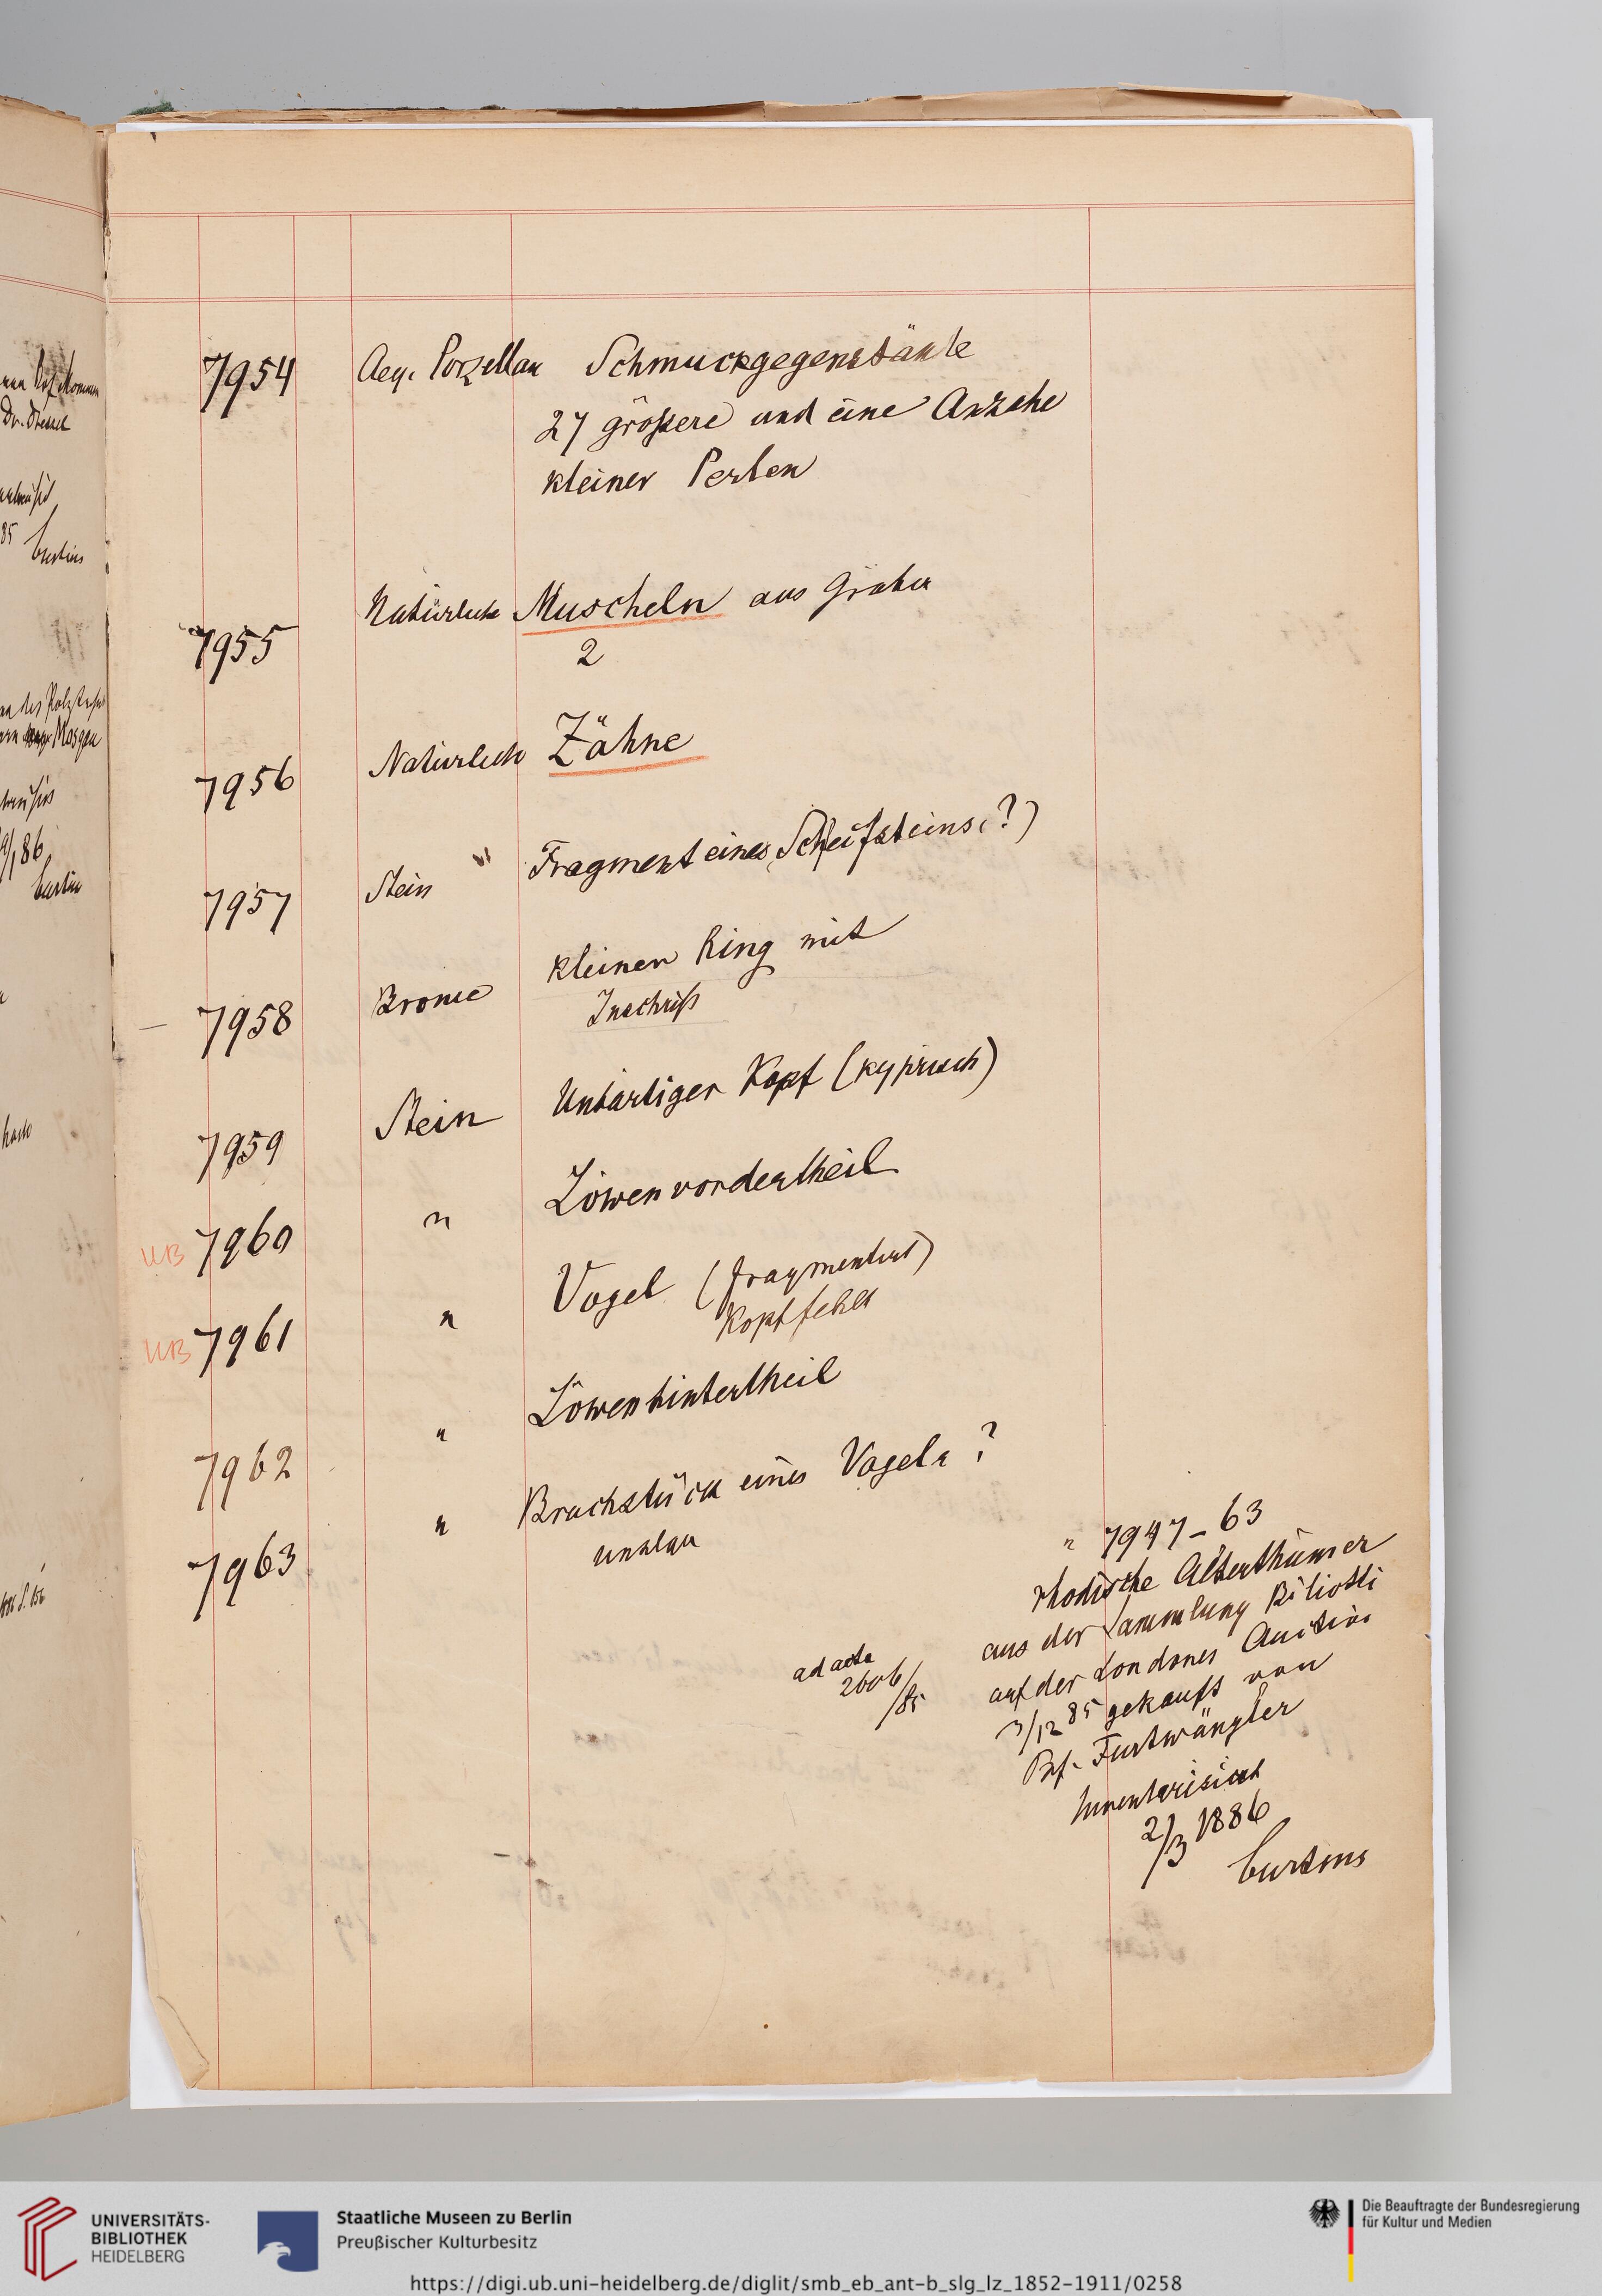 7954 Aeg. Porzellan Schmuckgegenstände
27 größere und eine Anzahl
kleiner Perlen
7955 Natürliche Muscheln aus Gräber
2
7956 Natürlich Zähne
7957 Stein Fragment eines Schleifsteins (?)
7958 Bronce kleiner Ring mit
Inschrift
7959 Stein Unbärtiger Kopf (kyprisch)
UB 7960 " Löwenvordertheil
UB 7961 " Vogel (fragmentirt)
Kopf fehlt
7962 " Löwenhintertheil
7963 " Bruchstück eines Vogels ?
unklar
" 7947-63
rhodische Alterthümer
aus der Sammlung Biliotti
auf der Londoner Auction
3/12 85 gekauft von
Prf. Furtwängler
Inventarisirt
2/3 1886
Curtius
ad acta
2606/85
Dr. Dressel
85 Curtius
Curtius
UNIVERSITÄTS-
BIBLIOTHEK
HEIDELBERG
Staatliche Museen zu Berlin
Preußischer Kulturbesitz
Die Beauftragte der Bundesregierung
für Kultur und Medien
https://digi.ub.uni-heidelberg.de/diglit/smb_eb_ant-b_slg_lz_1852-1911/0258